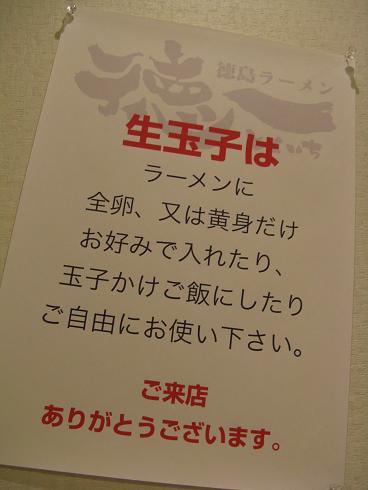 徳島ラーメン
徳一
とくいち
生玉子は
ラーメンに
全卵、又は黄身だけ
お好みで入れたり、
玉子かけご飯にしたり
ご自由にお使い下さい。
ご来店
ありがとうございます。